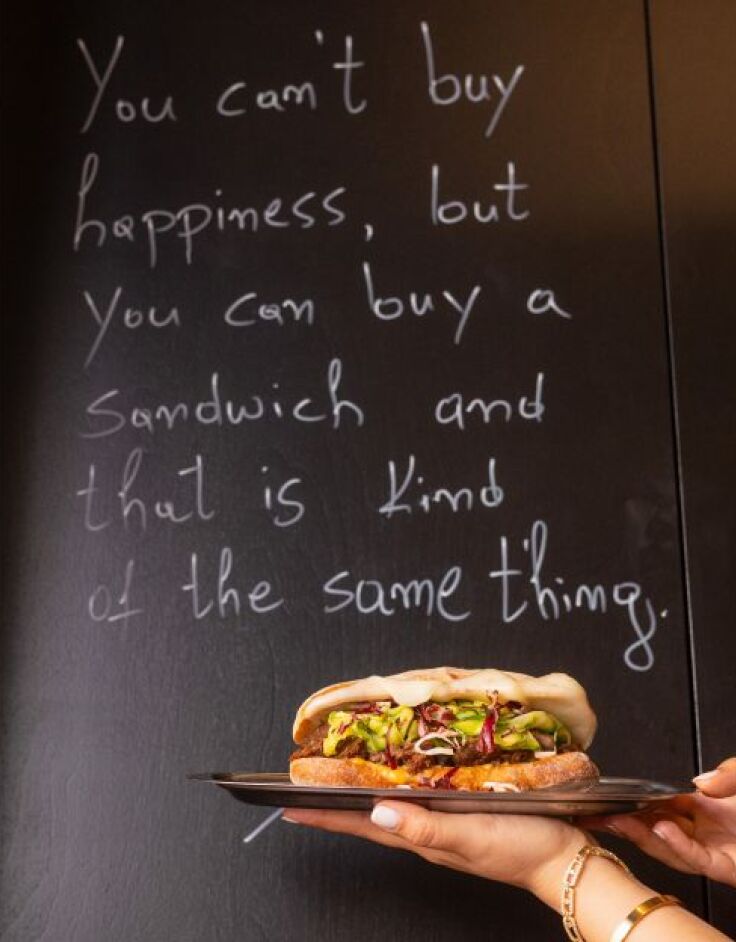 You can't buy
happiness, but
you can buy a
sandwich and
that is kind
of the same thing.